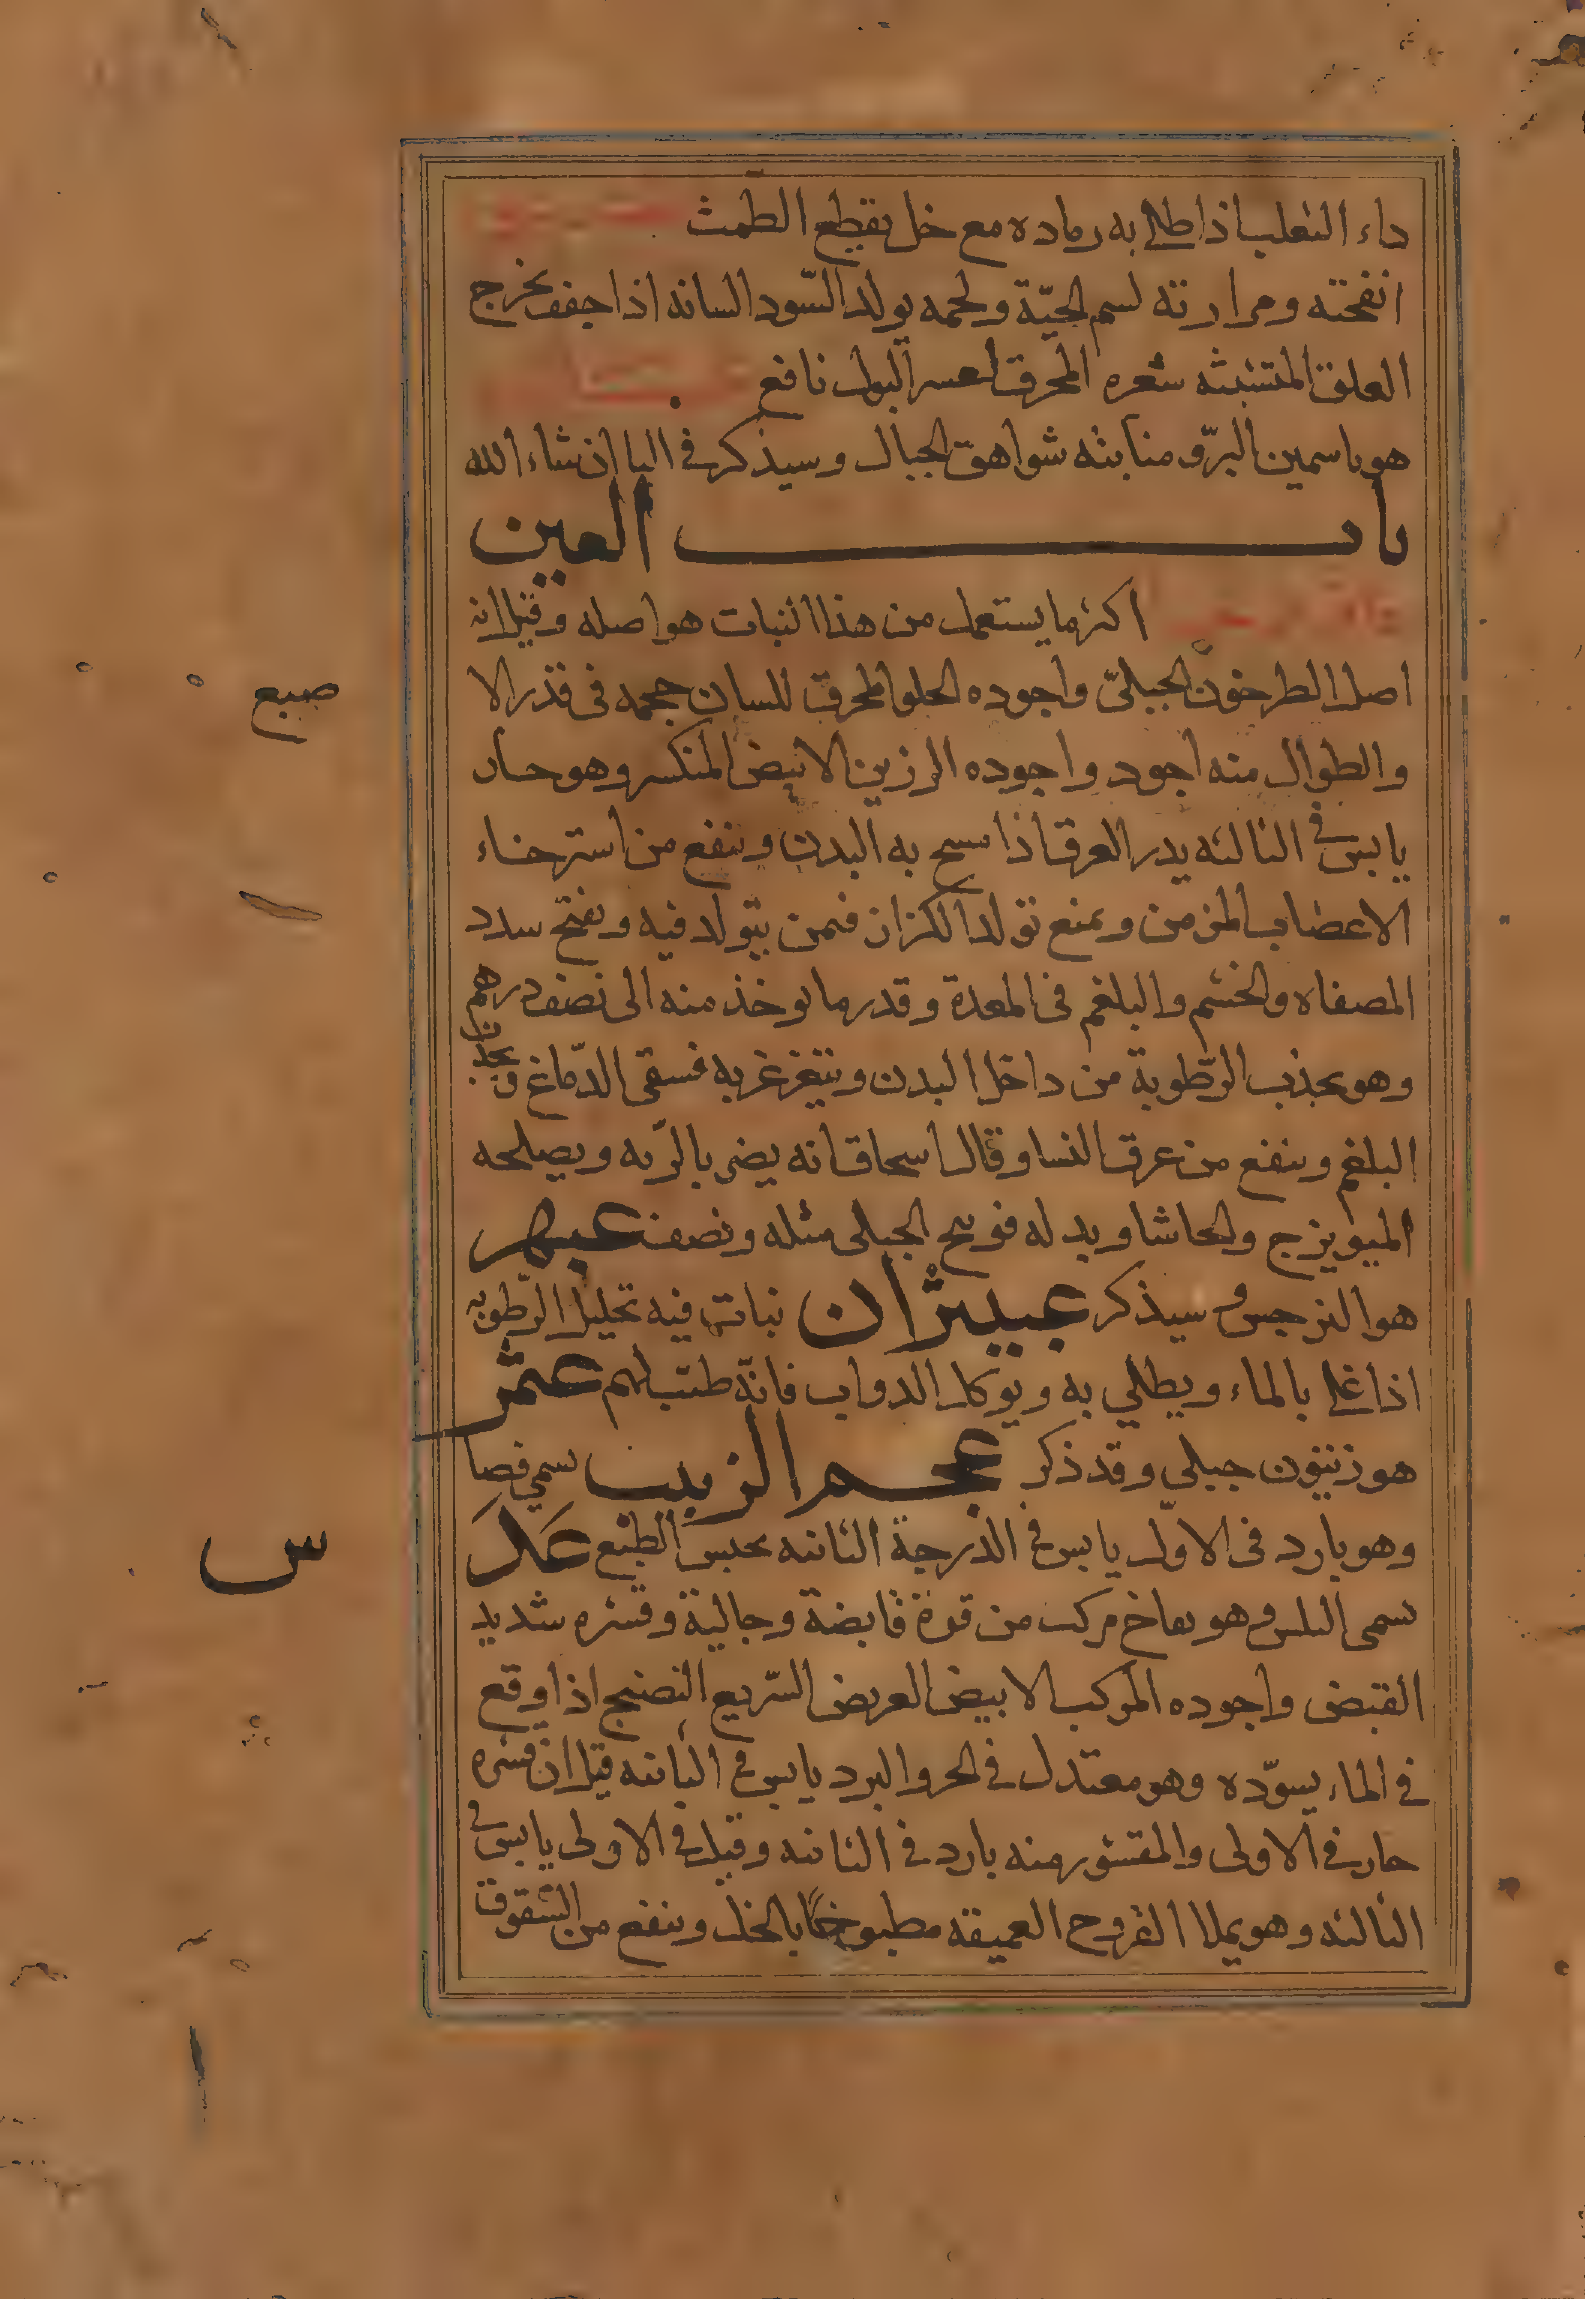 داء الثعلب اذا طلي به رماده مع خل يقطع الطمث
انفحته ومرارته لسم الحيّة ولحمه يولد السّود السانه اذا جفف يخرج
العلق المتشبثه شعره المحرق لعسر البول نافع
هو ياسمين البرّ ومنابته شواهق الجبال وسيذكر في اليا ان شاء الله
باب العين
اكثر ما يستعمل من هذا النبات هو اصله وقيل انه
اصل الطرخون الجبليّ واجوده الحلو المحرق للسان حجمه في قدر الا
صبع
والطوال منه اجود واجوده الرزين الابيض المنكسر وهو حار
يابس في الثالثه يدر العرق اذا مسح به البدن وينفع من استرخاء
الاعضاب المزمن ويمنع تولد الكزاز فيمن يتولد فيه ويفتح سدد
المصفاه والخشم والبلغم في المعدة وقدر ما يوخذ منه الى نصف درهم
وهو يجذب الرّطوبة من داخل البدن ويتغرغر به فينقي الدّماغ ويجذب
البلغم وينفع من عرق النسا وقال اسحاق انه يضر بالريه ويصلحه
الميويزج والحاشا وبدله فوتنج الجبلي مثله ونصف عبهر
هو النرجس وسيذكر عبيثران نبات فيه تحليل الرّطوبه
اذا غلي بالماء ويطلي به ويوكل الدواب فانّه طيب لهم عتم
هو زيتون جبلي وقد ذكر عجم الزبيب يسمي فصا
وهو بارد في الاوّل يابس في الدّرجة الثانيه يحبس الطبع عدس
يسمى البلس وهو نفاخ مركب من قوة قابضة وجالية وقشره شديد
القبض واجوده المركب الابيض العريض السّريع النضج اذا وقع
في الماء يسوّده وهو معتدل في الحر والبرد يابس في الثانيه قيل ان قشره
حار في الاولى والمقشور منه بارد في الثانيه وقيل في الاولى يابس في
الثالثه وهو يملا القروح العميقه مطبوخا بالخل وينفع من الشقوق